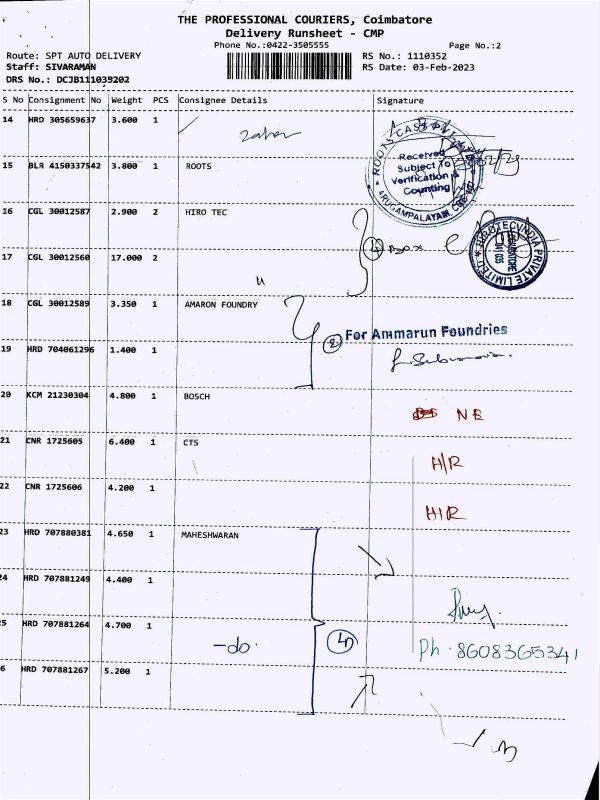 THE PROFESSIONAL COURIERS, Coimbatore
Delivery Runsheet - CMP
Phone No.:0422-3505555 Page No.:2
Route: SPT AUTO DELIVERY RS No.: 1110352
Staff: SIVARAMAN RS Date: 03-Feb-2023
DRS No.: DCJB111035202
S No Consignment No Weight PCS Consignee Details Signature
14 HRD 305659637 3.600 1
15 BLR 4150337542 3.800 1 ROOTS
Received
Subject To
Verification &
Counting
16 CGL 30012587 2.900 2 HIRO TEC
17 CGL 30012560 17.000 2
Box
18 CGL 30012589 3.350 1 AMARON FOUNDRY
2 For Ammarun Foundries
19 HRD 704061296 1.400 1
20 KCM 21230304 4.800 1 BOSCH
NE
21 CNR 1725605 6.400 1 CTS
H/R
22 CNR 1725606 4.200 1
H/R
23 HRD 707880381 4.650 1 MAHESHWARAN
24 HRD 707881249 4.400 1
25 HRD 707881264 4.700 1
-do- 4
Ph. 8608365341
26 HRD 707881267 5.200 1